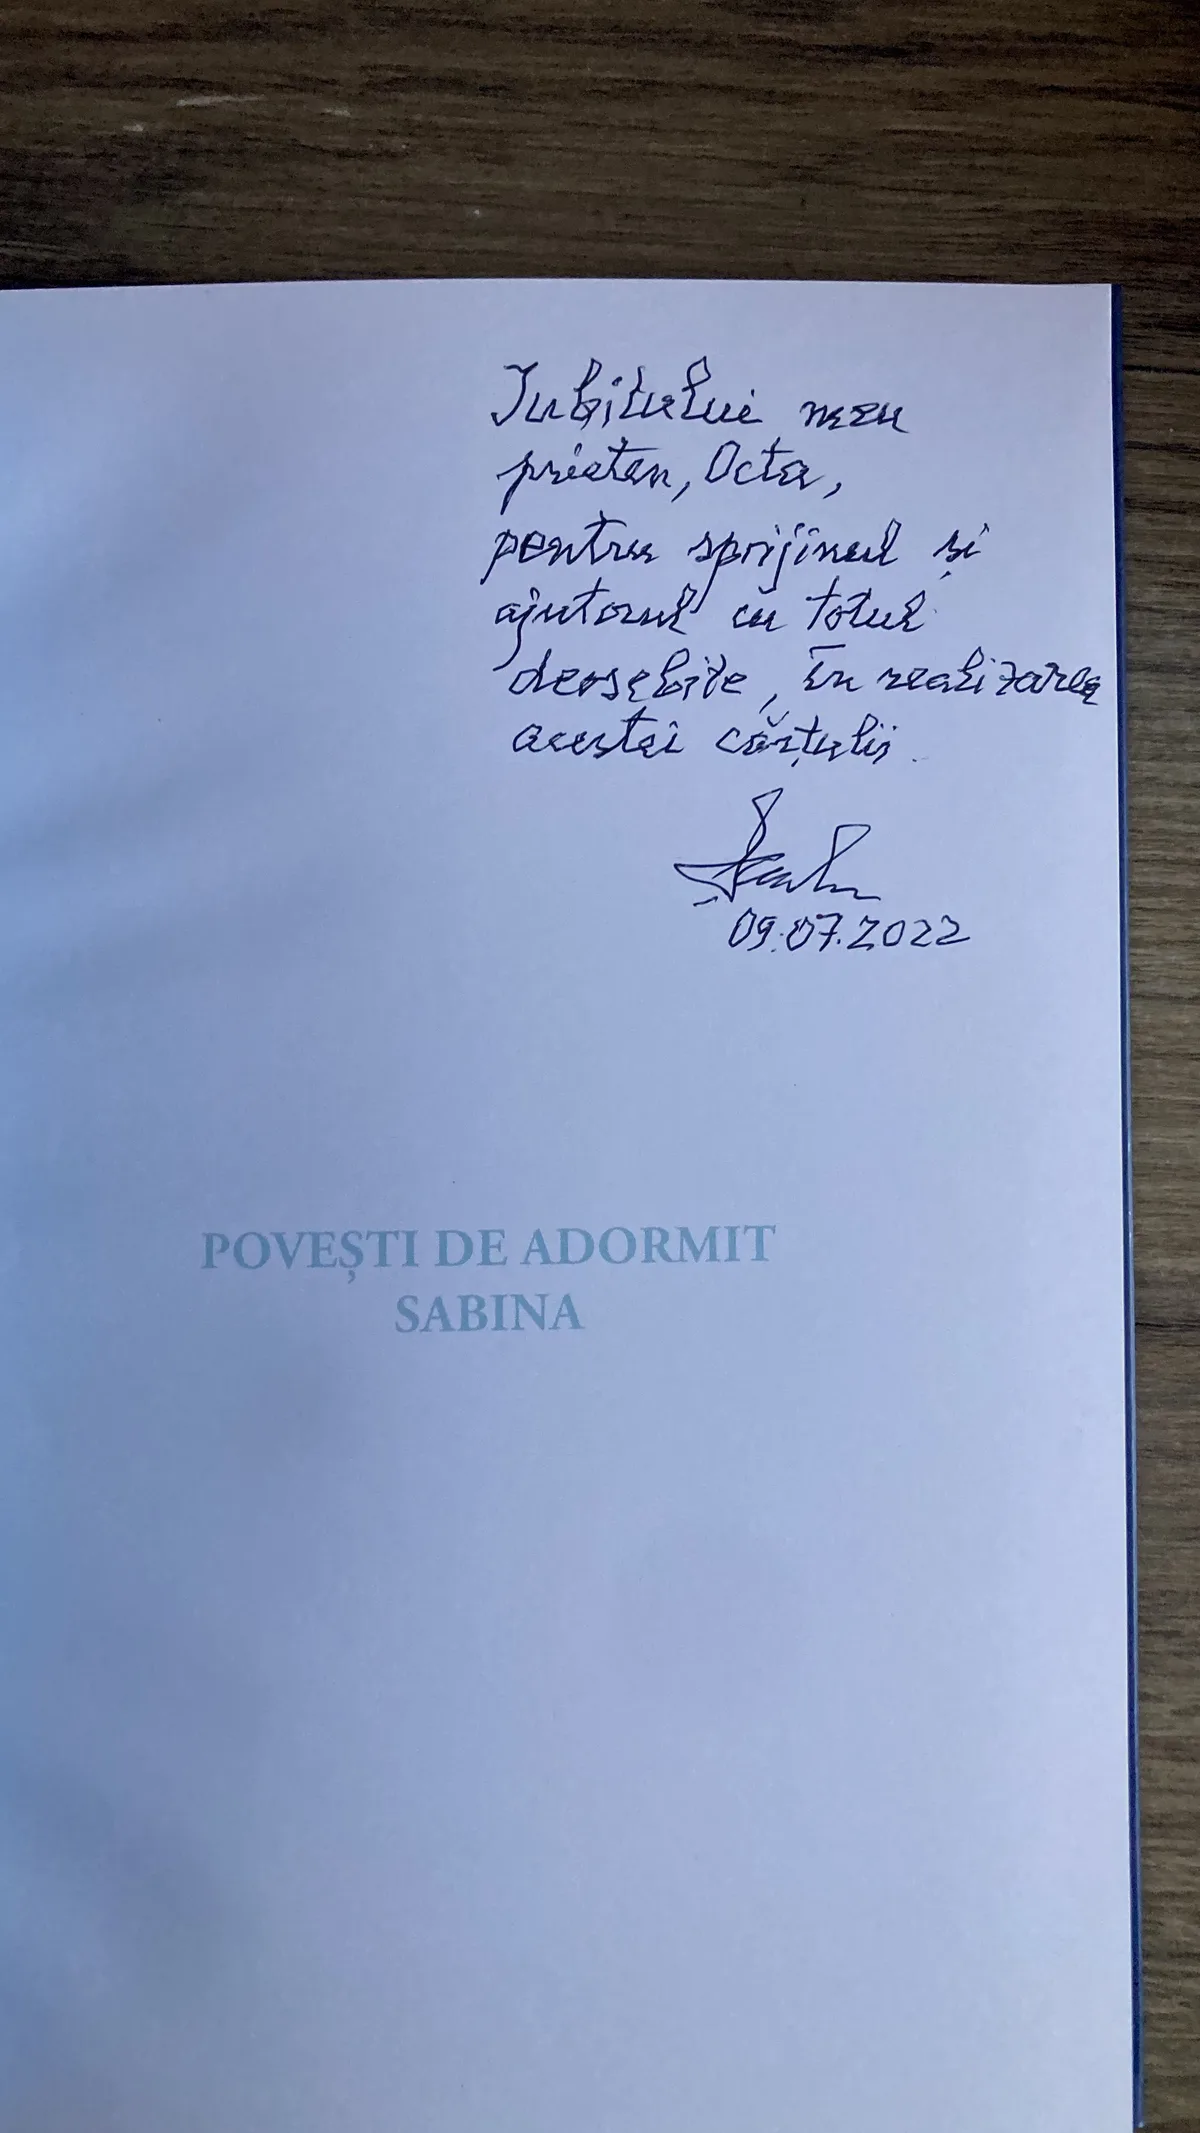 Iubitului meu
prieten, Octa,
pentru sprijinul și
ajutorul cu totul
deosebite, în realizarea
acestei cărțulii.
09.07.2022
POVEȘTI DE ADORMIT
SABINA